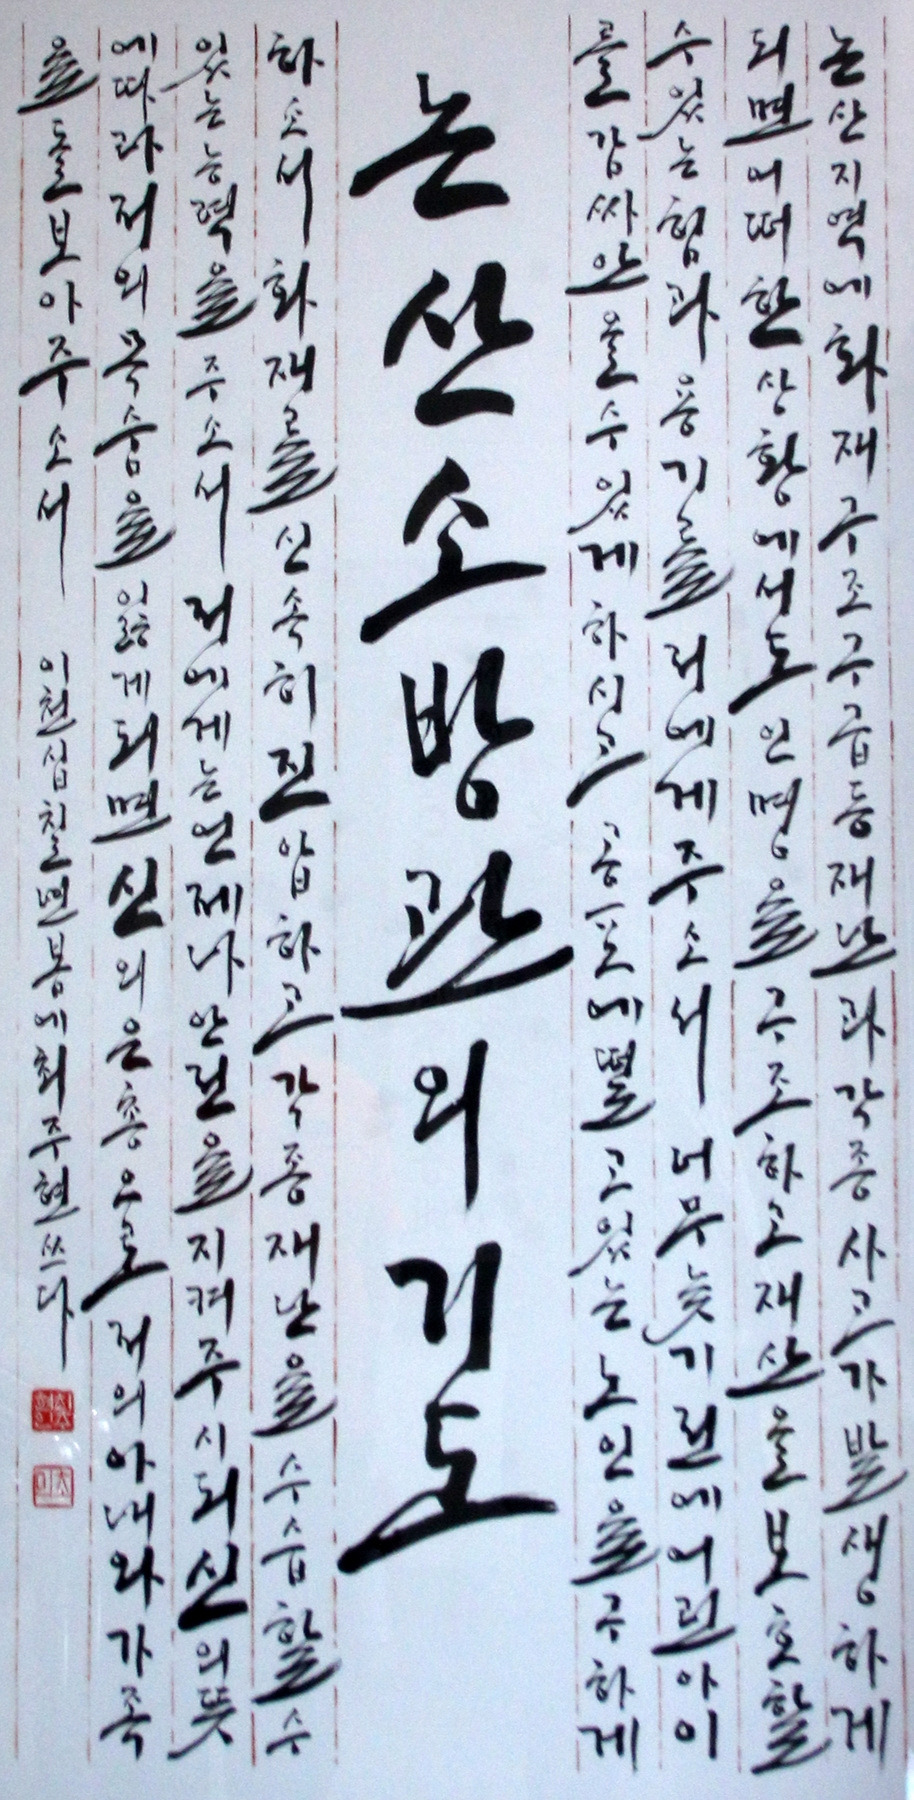 논산지역에화재구조구급등재난과각종사고가발생하게
되면어떠한상황에서도인명을구조하고재산을보호할
수있는힘과용기를저에게주소서 너무늦기전에어린아이
를감싸안을수있게하시고 공포에떨고있는노인을구하게
논산소방관의기도
하소서 화재를신속히진압하고각종재난을수습할수
있는능력을주소서 저에게는언제나안전을지켜주시되신의뜻
에따라저의목숨을잃게되면신의은총으로저의아내와가족
을돌보아주소서 이천십칠년봄에최주현쓰다